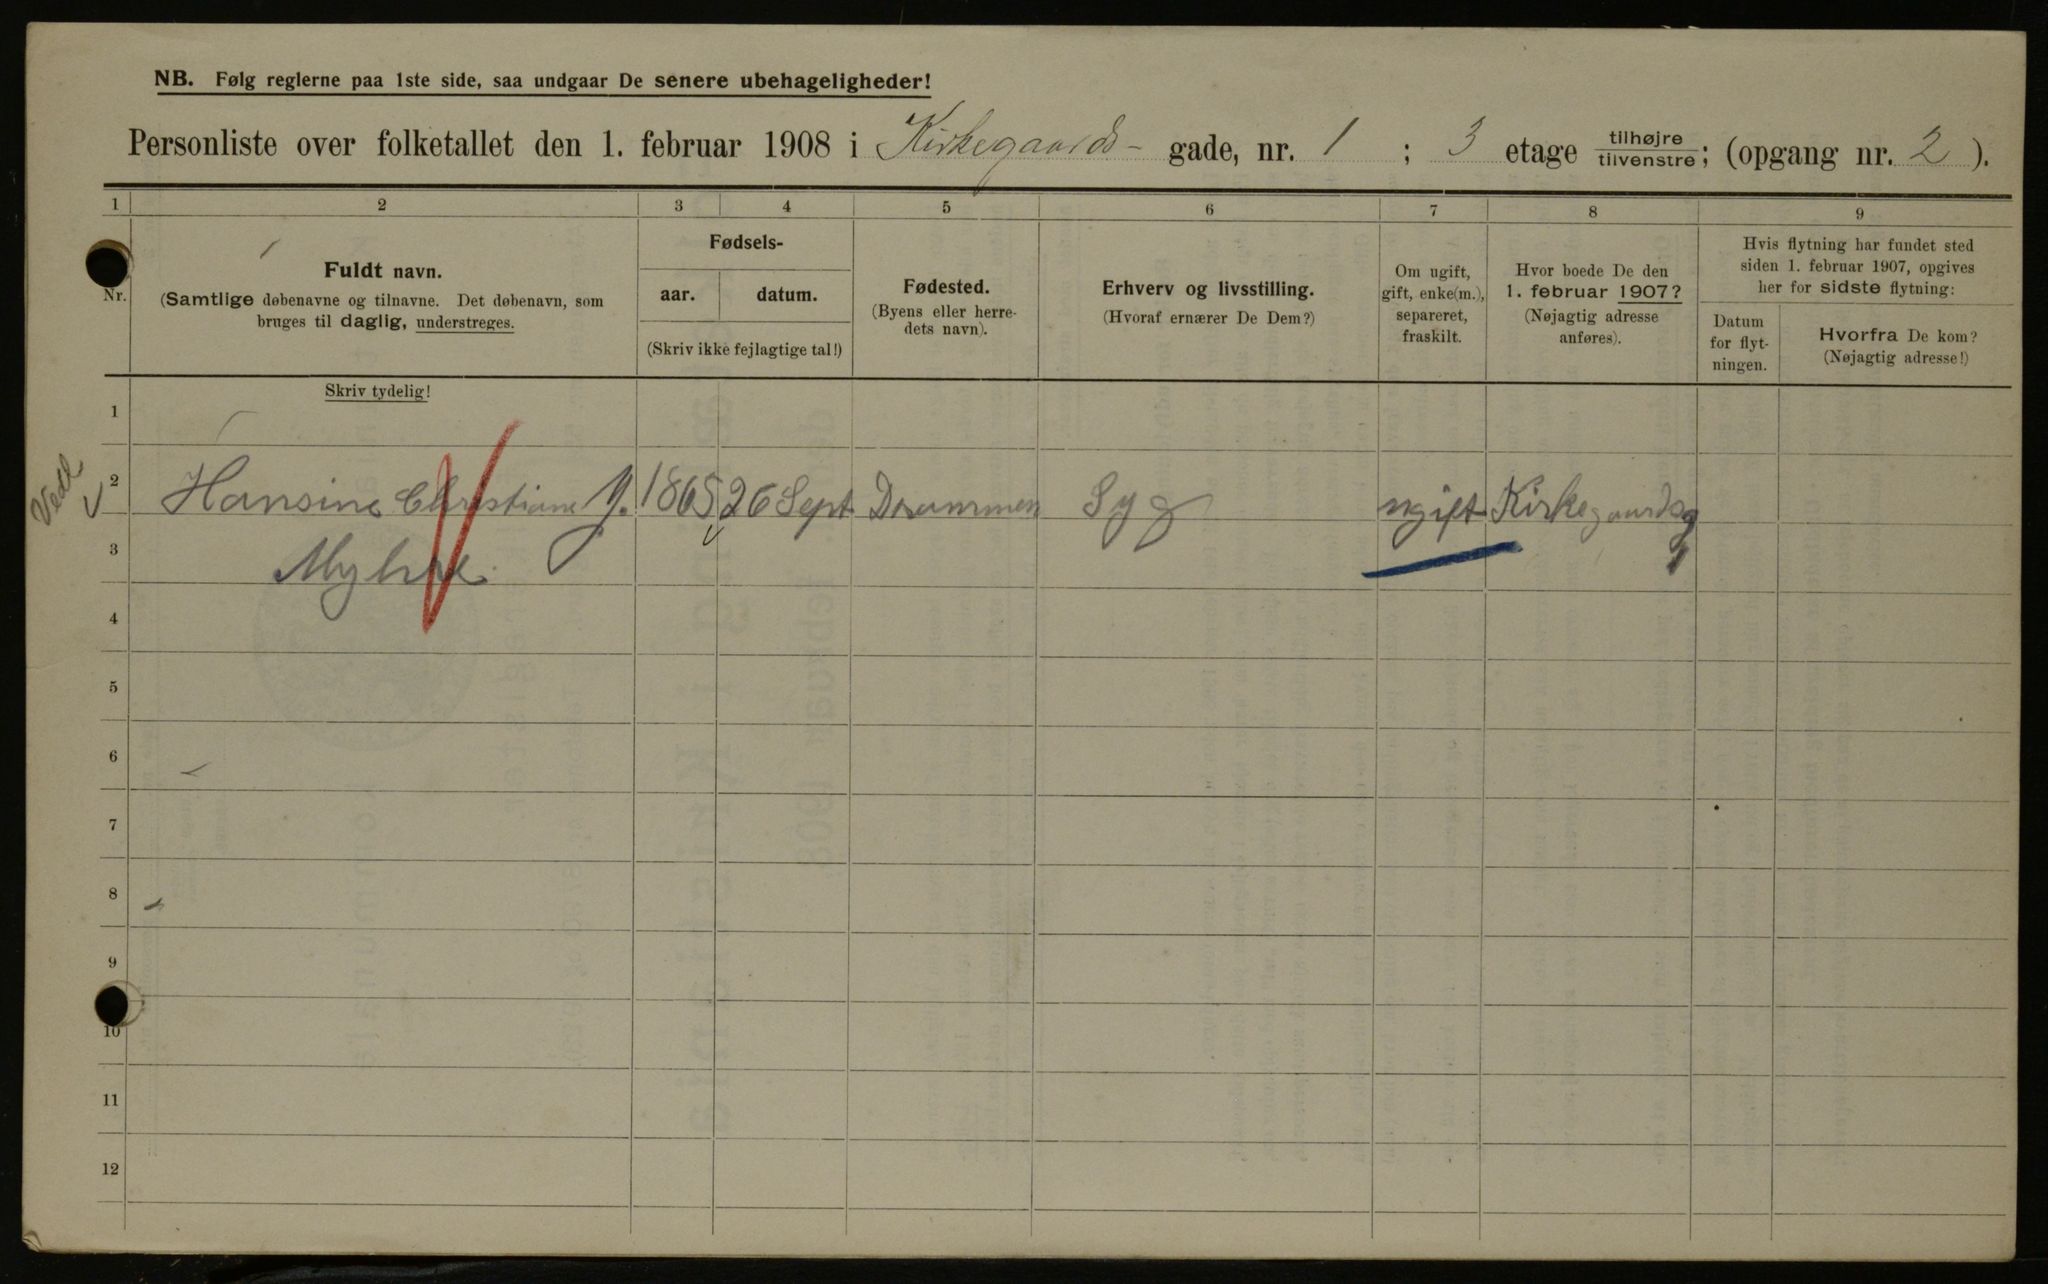 NB. Følg reglerne paa 1ste side, saa undgaar De senere ubehageligheder!
Personliste over folketallet den 1. februar 1908 i Kirkegaards- gade, nr. 1 ; 3 etage tilhøjre / tilvenstre; (opgang nr. 2 ).
1 2 3 4 5 6 7 8 9
Nr.
Fuldt navn.
(Samtlige døbenavne og tilnavne. Det døbenavn, som
bruges til daglig, understreges.
Fødsels-
aar. datum.
(Skriv ikke fejlagtige tal!)
Fødested.
(Byens eller herre-
dets navn).
Erhverv og livsstilling.
(Hvoraf ernærer De Dem?)
Om ugift,
gift, enke(m.),
separeret,
fraskilt.
Hvor boede De den
1. februar 1907?
(Nøjagtig adresse
anføres).
Hvis flytning har fundet sted
siden 1. februar 1907, opgives
her for sidste flytning:
Datum
for flyt-
ningen.
Hvorfra De kom?
(Nøjagtig adresse!)
Skriv tydelig!
1
Vedl
2 Hansine Christiane M. 1865 26 Sept Drammen Syg ugift Kirkegaardsg
3 Myhre 1
4
5
6
7
8
9
10
11
12